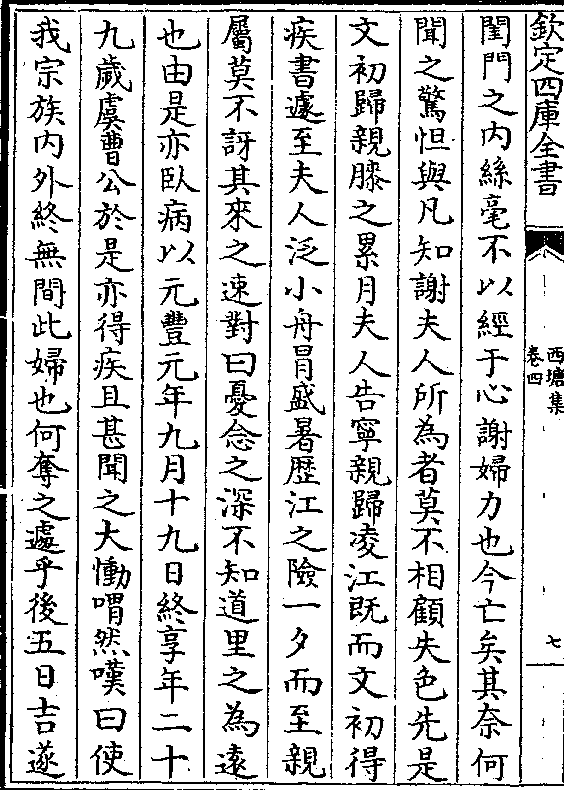 欽定四庫全書
西塘集
卷四
七
閨門之内絲毫不以經于心謝婦力也今亡矣其奈何
聞之驚怛與凡知謝夫人所為者莫不相顧失色先是
文初歸親滕之累月夫人告寧親歸凌江既而文初得
疾書遽至夫人泛小舟冒盛暑歴江之險一夕而至親
屬莫不訝其來之速對曰憂念之深不知道里之為遠
也由是亦卧病以元豐元年九月十九日終享年二十
九歲虞曹公於是亦得疾且甚聞之大慟喟然嘆曰使
我宗族内外終無間此婦也何奪之遽乎後五日吉遂